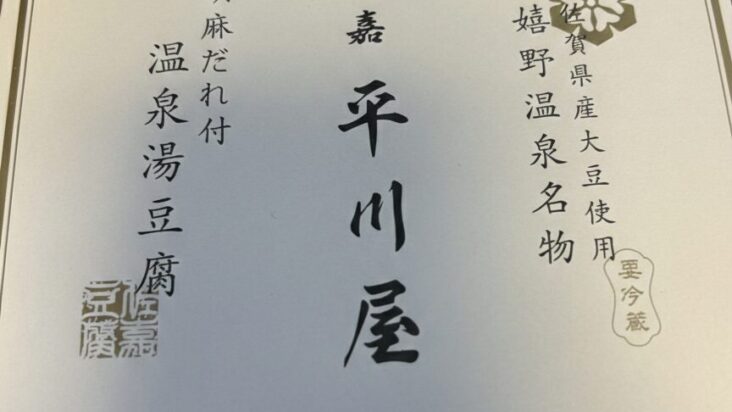 佐賀県産大豆使用
嬉野温泉名物
要冷蔵
嘉 平川屋
麻だれ付
温泉湯豆腐
佐嘉
豆腐